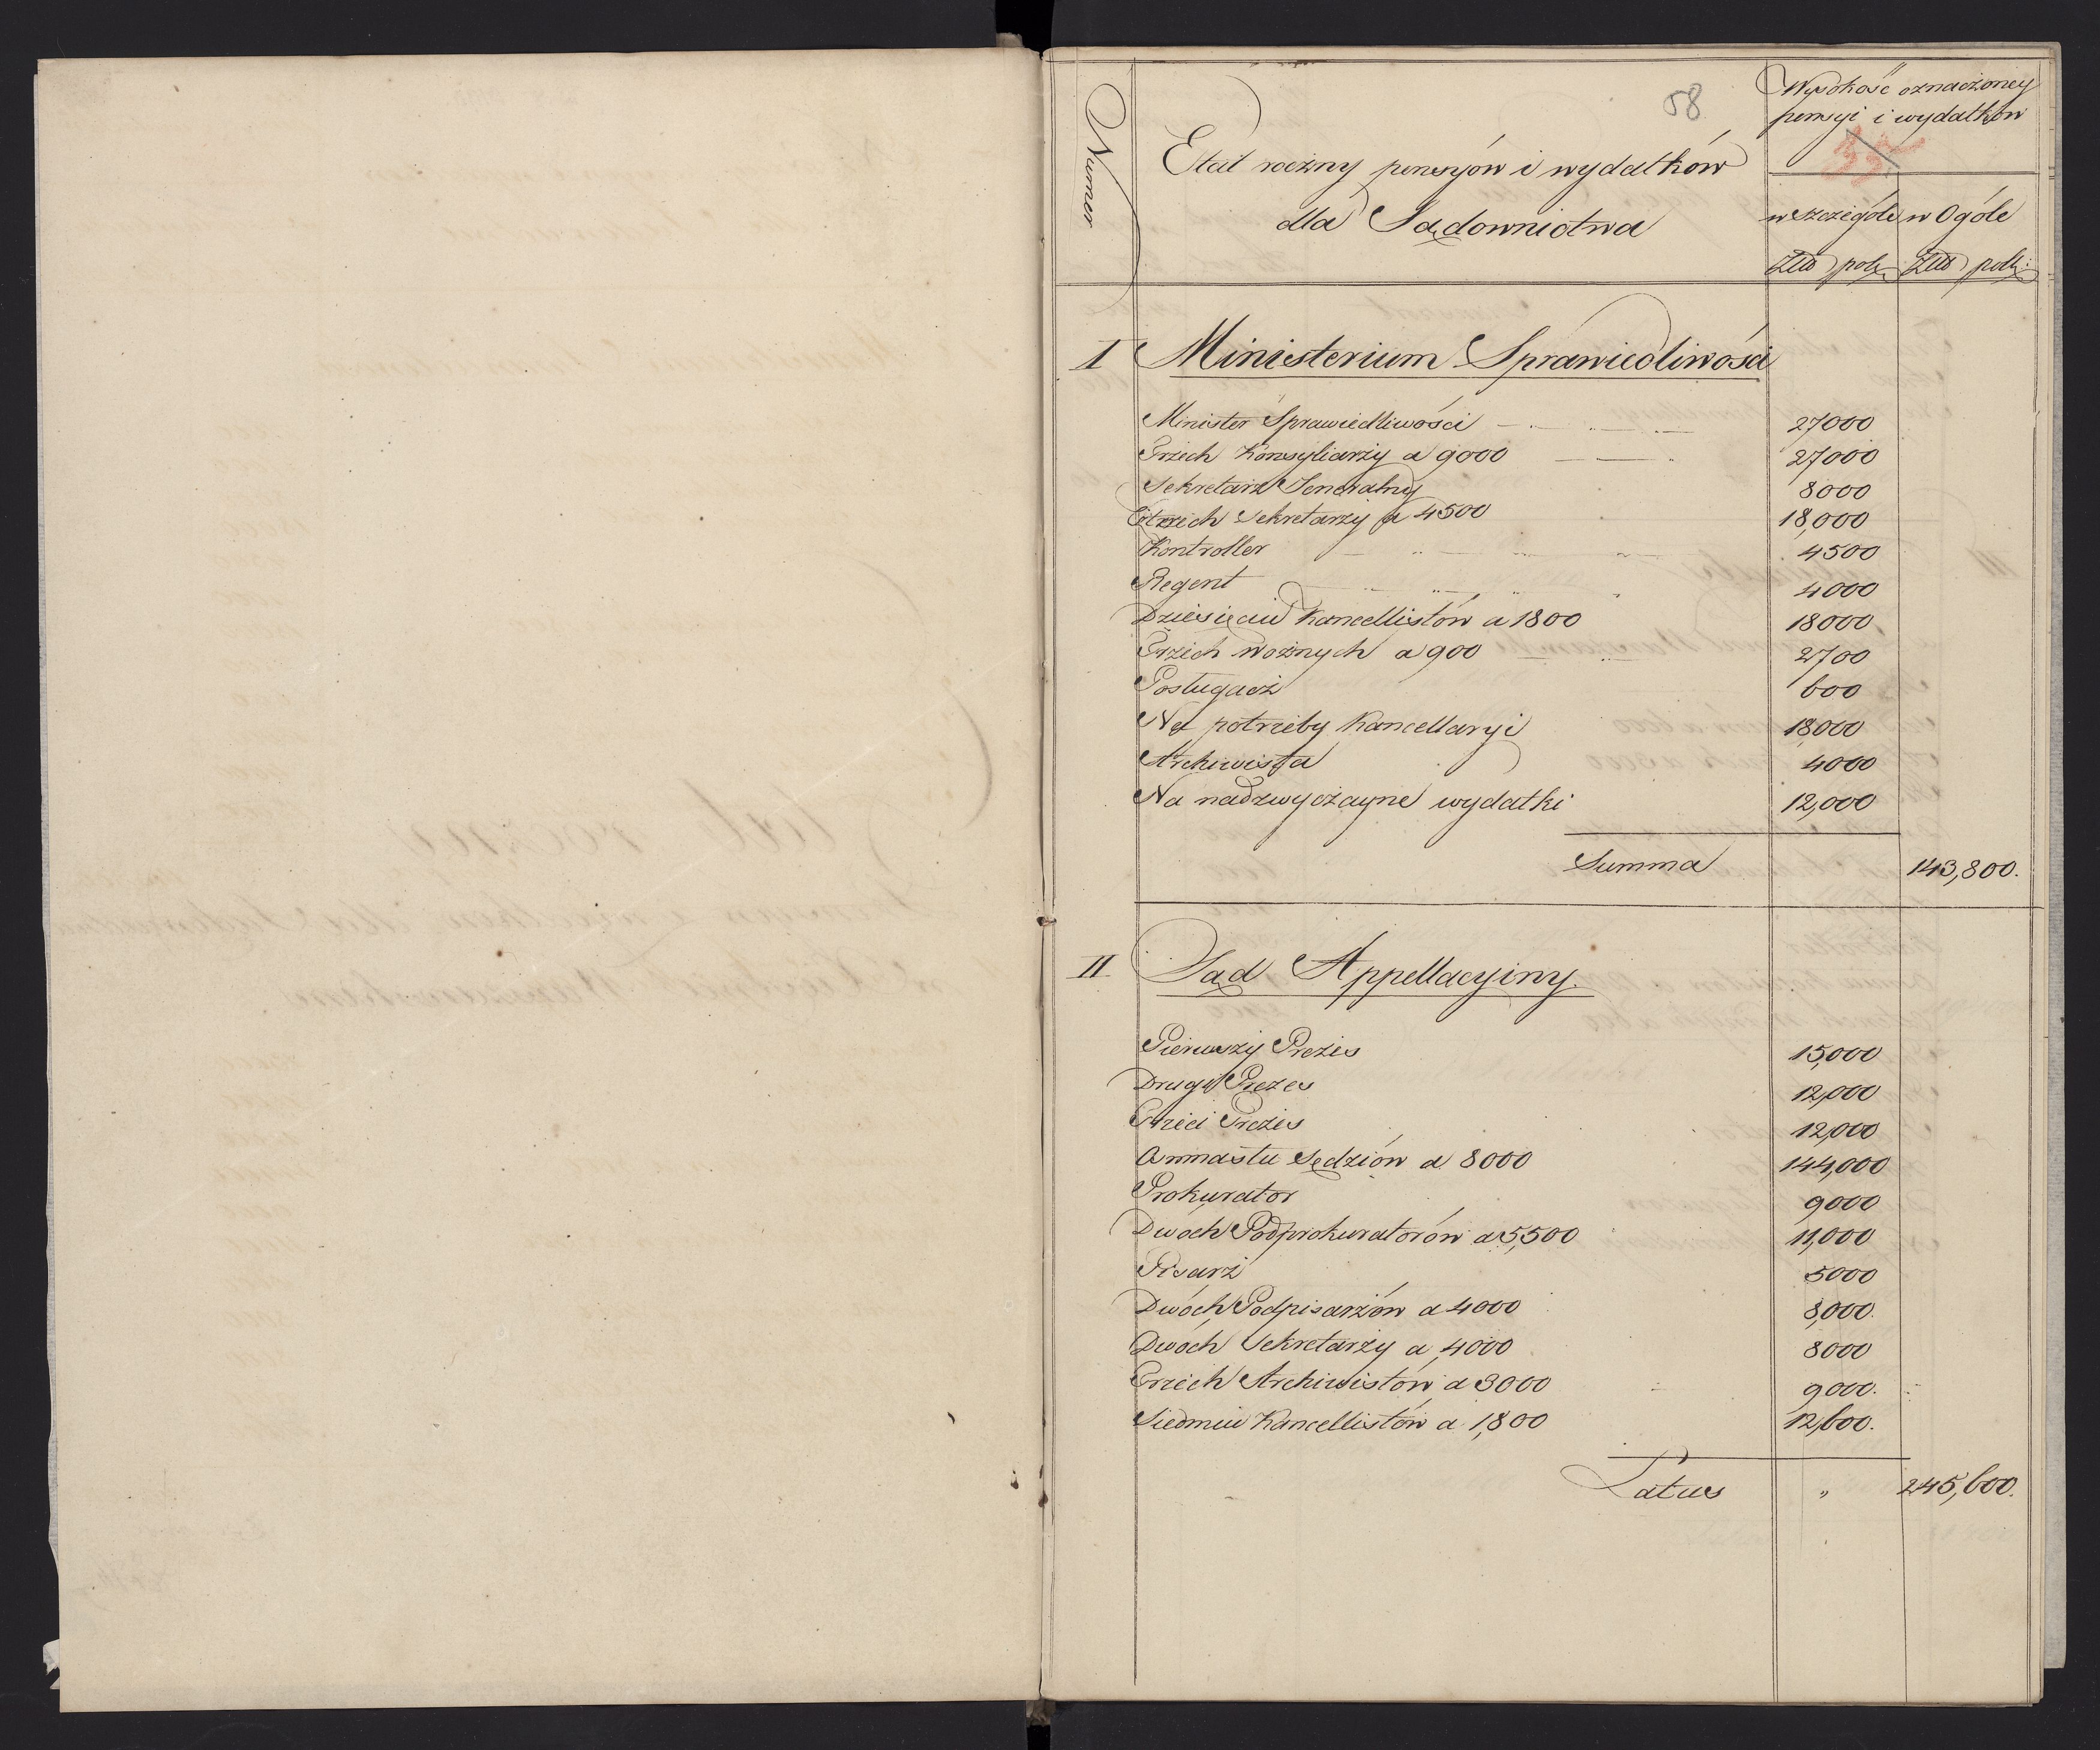 58
Numer
Etat roczny pensyów i wydatków
dla Sądownictwa
Wysokość oznaczoney
pensyi i wydatków
w szczególe w Ogóle
Złło polą Złło polą:
I Ministerium Sprawiedliwości
Minister Sprawiedliwości 27000
Trzech Konsyliarzy a 9000 27000
Sekretarz Generalny 8000
Czterech Sekretarzy a 4500 18,000
Kontroller 4500
Regent 4000
Dziesięciu Kancellistów a 1800 18000
Trzech Woźnych a 900 2700
Posługacz 600
Na potrzeby Kancellaryi 18000
Archiwista 4000
Na nadzwyczayne wydatki 12,000
Summa 143,800.
II Sąd Appellacyiny.
Pierwszy Prezes 15,000
Drugi Prezes 12,000
Trzeci Prezes 12,000
Osmnastu Sędziów a 8000 144,000
Prokurator 9000
Dwóch Podprokuratorów a 5,500 11,000
Pisarz 5000
Dwóch Podpisarzów a 4000 8,000.
Dwoch Sekretarzy a 4000 8000
Trzech Archiwistów a 3000 9000.
Siedmiu Kancellistów a 1,800 12,600.
Latus „ 245,600.